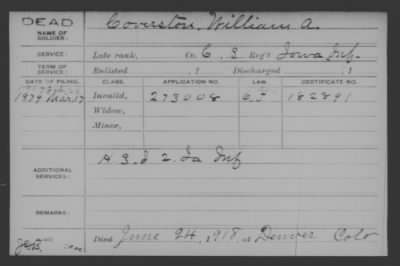 DEAD
NAME OF SOLDIER: Coverston, William A.
SERVICE: Late rank, Co. C, 3 Reg't Iowa Inf.
TERM OF SERVICE: Enlisted , 1 Discharged , 1
DATE OF FILING. CLASS. APPLICATION NO. LAW. CERTIFICATE NO.
1879 Mar. 17 Invalid, 273008 182891
Widow,
Minor,
ADDITIONAL SERVICES: H. 3 & 2 Ia Inf
REMARKS:
Died June 24, 1918, at Denver Colo